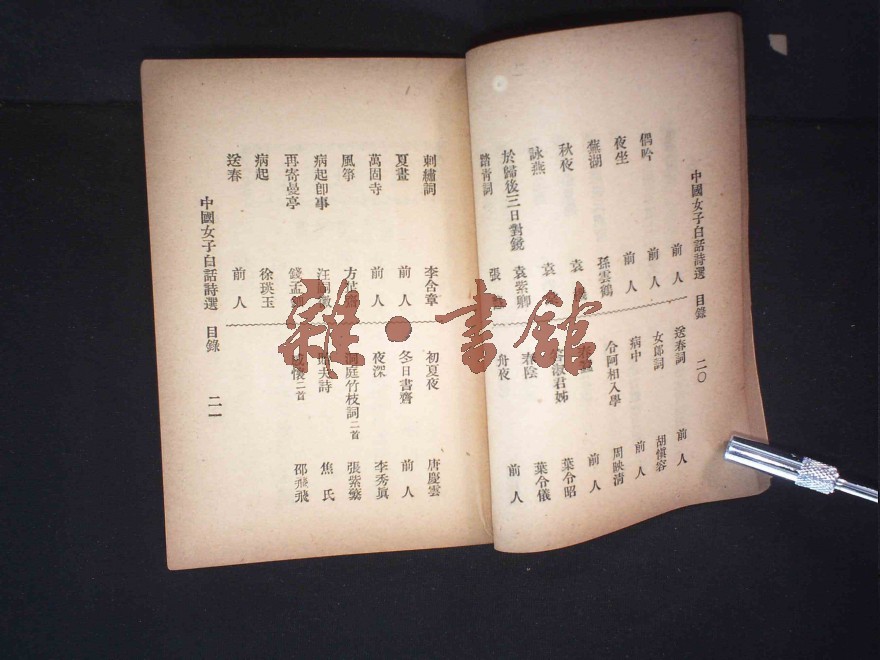 中國女子白話詩選 目錄 二〇
偶吟 前人
夜坐 前人
蕪湖 前人
秋夜 孫雲鶴
詠燕 袁
於歸後三日對鏡 袁
踏青詞 袁紫卿
張
送春詞 前人
女郎詞 胡慎容
病中 前人
令阿相入學 周映清
前人
君姊 葉令昭
春陰 葉令儀
舟夜 前人
刺繡詞 李含章
夏晝 前人
萬固寺 前人
風箏 方
病起卽事 汪
再寄曼亭 錢孟
病起 徐瑛玉
送春 前人
初夏夜 唐慶雲
冬日書齋 前人
夜深 李秀眞
洞庭竹枝詞二首 張紫蘩
詩 焦氏
懷二首 邵飛飛
中國女子白話詩選 目錄 二一
雜·書館